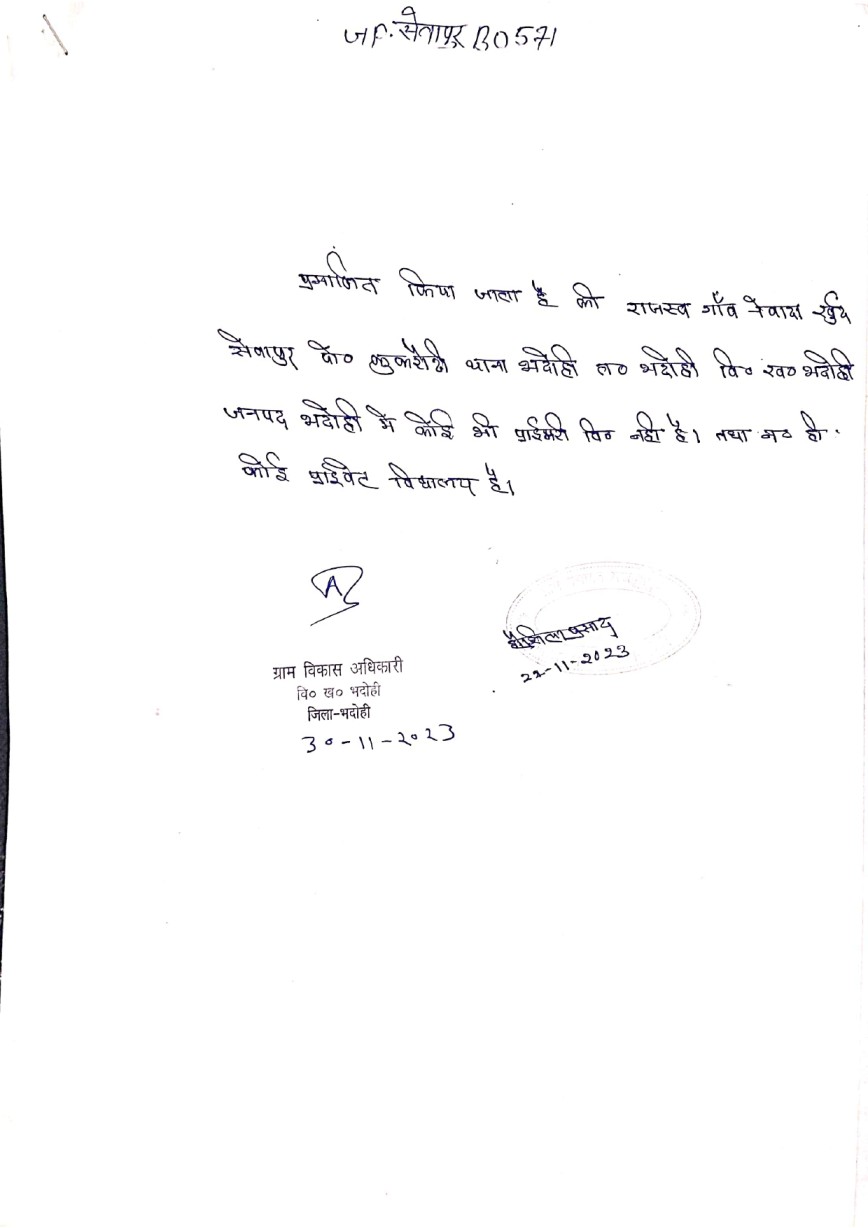 सेवापुर B0571
प्रमाणित किया जाता है की राजस्व गाँव नेवादा खुर्द
सेवापुर पो० थाना भदोही त० भदोही वि० ख० भदोही
जनपद भदोही में कोई भी प्राईमरी वि० नही है। तथा न० ही
कोई प्राईवेट विद्यालय है।
ग्राम विकास अधिकारी
वि० ख० भदोही
जिला-भदोही
30-11-2023
प्रसाद
22-11-2023